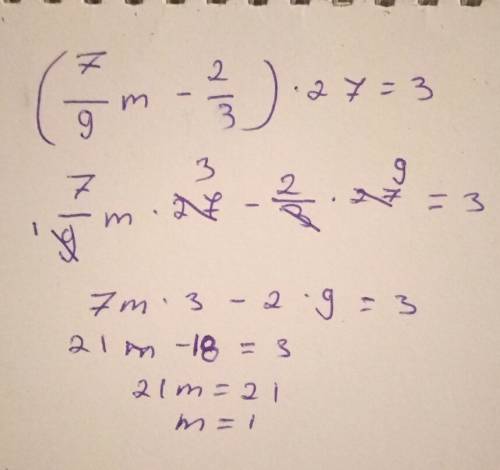 (7/9 m - 2/3) · 27 = 3
7/9 1 m · 27 3 - 2/3 · 27 9 = 3
7m · 3 - 2 · 9 = 3
21m - 18 = 3
21m = 21
m = 1